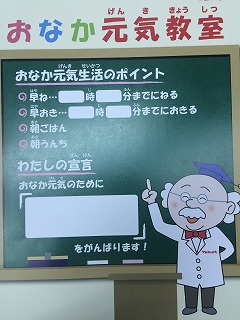 おなか元気教室
おなか元気生活のポイント
早ね… 時 分までにねる
早おき… 時 分までにおきる
朝ごはん
朝うんち
わたしの宣言
おなか元気のために
をがんばります！